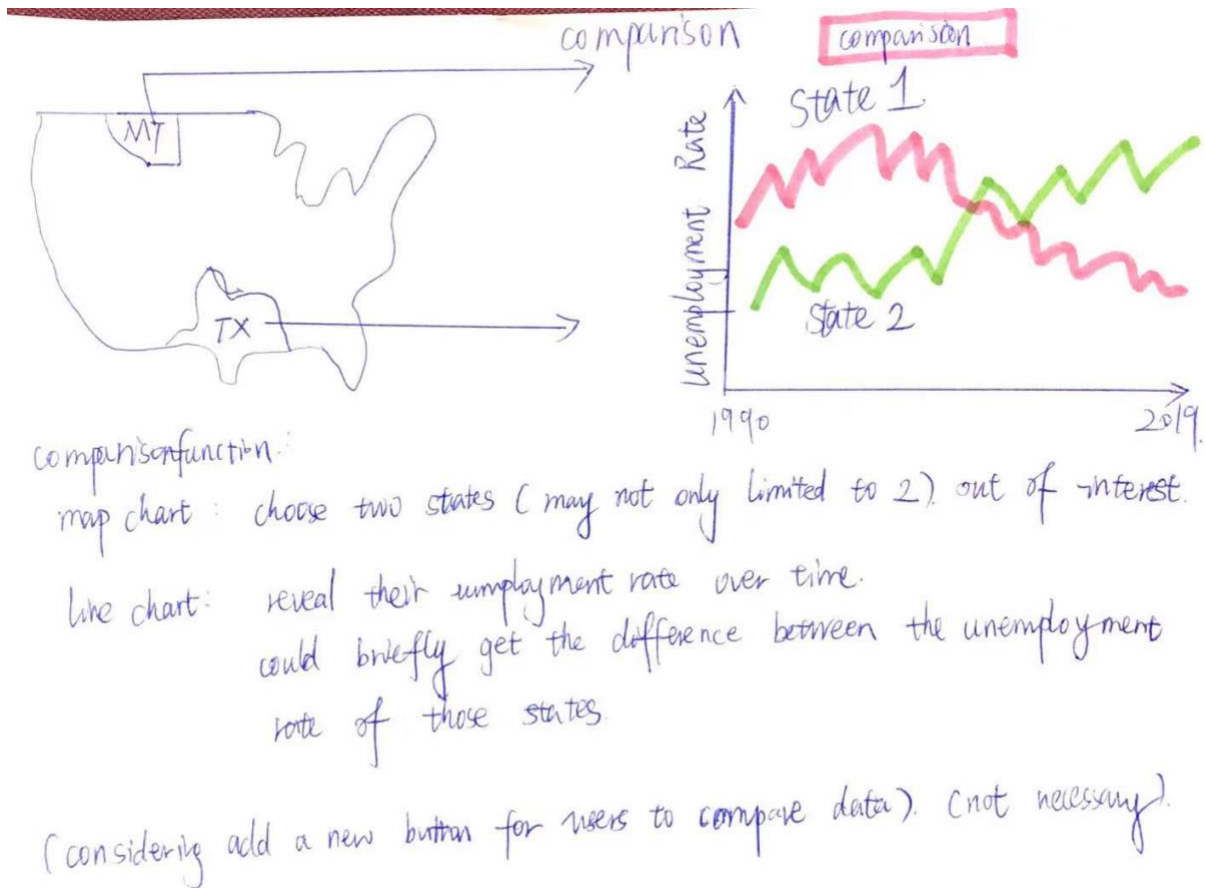 comparison
comparision
MT
TX
State 1
State 2
Unemployment Rate
1990
2019.
comparisonfunction:
map chart : choose two states (may not only limited to 2) out of interest.
line chart: reveal their umployment rate over time.
could briefly get the difference between the unemployment
rate of those states.
(considering add a new button for users to compare data). (not necessary).